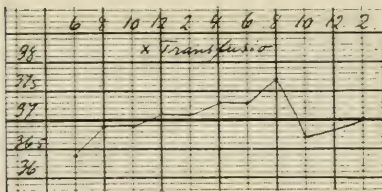 6 8 10 12 2 4 6 8 10 12 2
98 x Transfusio
375
97
365
36